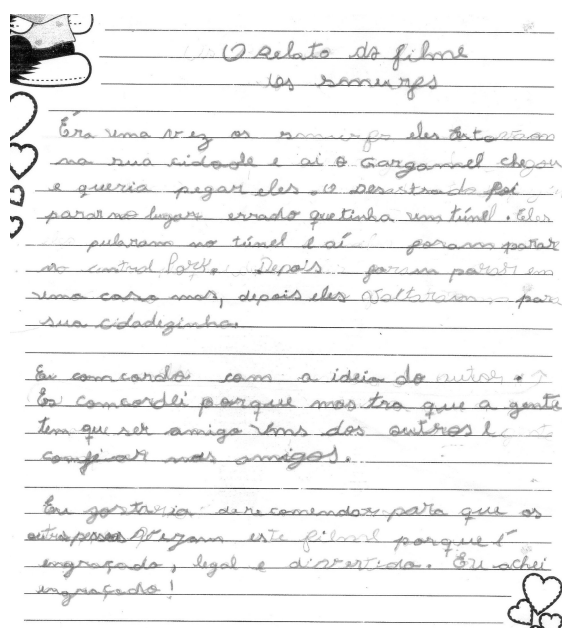 O relato do filme
Os smurfs
Éra uma vez os smurfs eles estavam
na sua cidade e ai o Gargamel chegou
e queria pegar eles. O Desastrado foi
parar no lugar errado que tinha um túnel. Eles
pularam no túnel e aí foram parar
no central Park. Depois foram parar em
uma casa mas, depois eles Voltaram para
sua cidadezinha.
Eu comcordo com a ideia do autor.
Eo comcordei porque mos tra que a gente
tem que ser amigo Uns dos outros e
comfiar nos amigos.
Eu gostaria de re comendar para que os
outras pessoas Vejam este filme porque é
engraçado, legal e divertido. Eu achei
engraçado!